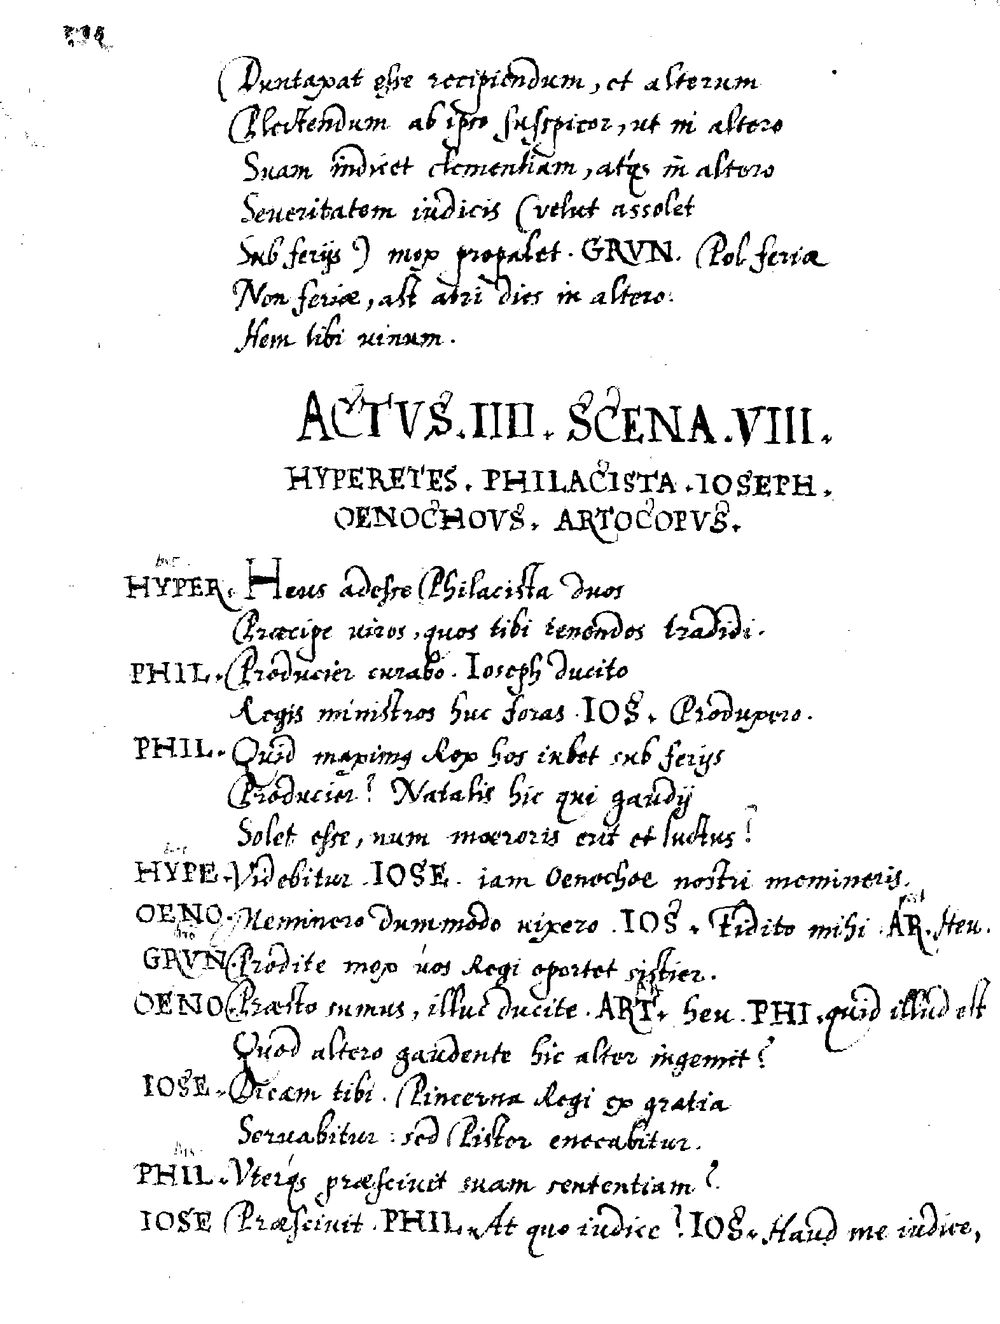 Duntaxat esse recipiendum, et alterum
Plectendum ab ipso suspicor, ut in altero
Suam indicet clementiam, atq3 in altero
Seueritatem iudicis (velut assolet
Sub ferijs) mox propalet. GRVN. Pol feriæ
Non feriæ, ast atri dies in altero.
Hem tibi uinum.
ACTVS. IIII. SCENA. VIII.
HYPERETES. PHILACISTA. IOSEPH.
OENOCHOVS. ARTOCOPVS.
HYPER. Heus adesse Philacista duos
Præcipe uiros, quos tibi tenendos tradidi.
PHIL. Producier curabo. Ioseph ducito
Regis ministros huc foras. IOS. Produxero.
PHIL. Quid maximus Rex hos iubet sub ferijs
Producier? Natalis hic qui gaudij
Solet esse, num mœroris erit et luctus?
HYPE. Videbitur. IOSE. iam Oenochoe nostri memineris.
OENO. Meminero dummodo uixero. IOS. Fidito mihi. AR. Heu.
GRVN. Prodite mox uos Regi oportet sistier.
OENO. Præsto sumus, illuc ducite. ART. heu. PHI. quid illud est
Quod altero gaudente hic alter ingemit?
IOSE. Dicam tibi. Pincerna Regi ex gratia
Seruabitur: sed Pistor enecabitur.
PHIL. Vterq3 præsciuit suam sententiam?
IOSE Præsciuit. PHIL. At quo iudice? IOS. Haud me iudice,